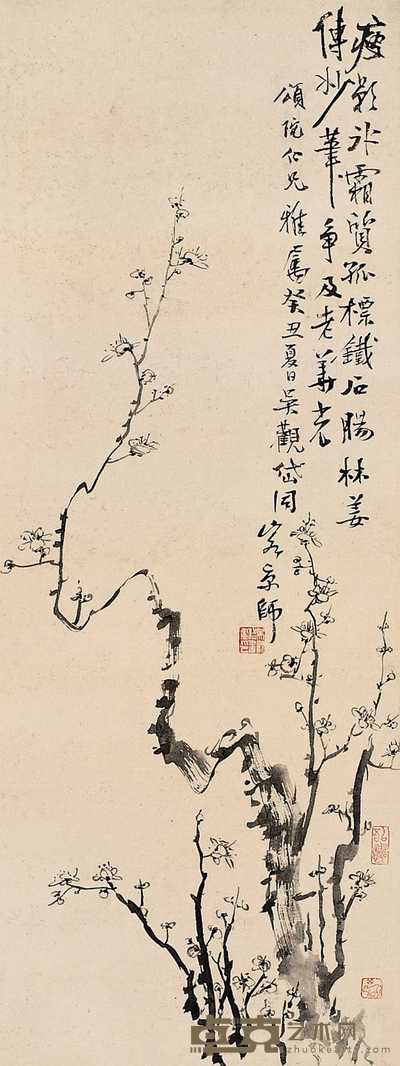 瘦影冰霜質孤標鐵石腸林姜
傳妙筆争及老華光
頌陀仁兄雅屬癸丑夏日吳觀岱同
客京師
卓克艺术网
zhuokearts.com